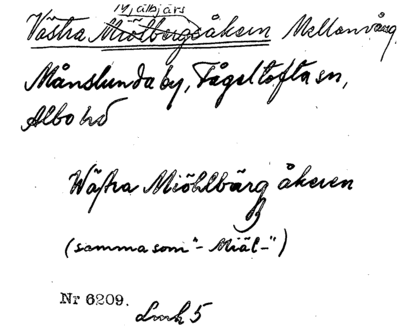 Mjälbjärs
Västra Miölbergsåkern Mellanvång.
Månslunda by, Fågeltofta sn,
Albo hd
Wästra Miöhlbärg åkeren
(samma som "- Miäl -")
Nr 6209.
5